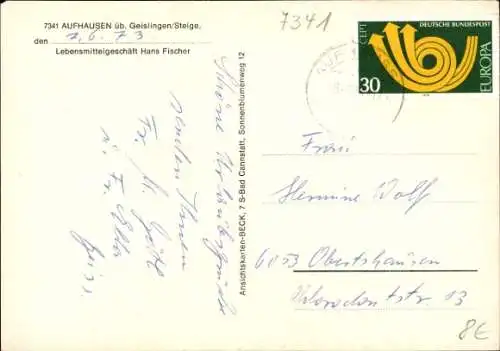 7341 AUFHAUSEN üb. Geislingen/Steige,
den 1.6.73
Lebensmittelgeschäft Hans Fischer
7341
CEPT
DEUTSCHE BUNDESPOST
30
EUROPA
Schöne Urlaubsgrüße
senden Ihnen
Fr. A.
u. Fr.
Ansichtskarten-BECK, 7 S-Bad Cannstatt, Sonnenblumenweg 12
Frau
Hermine Wolf
6053 Obertshausen
13
8€